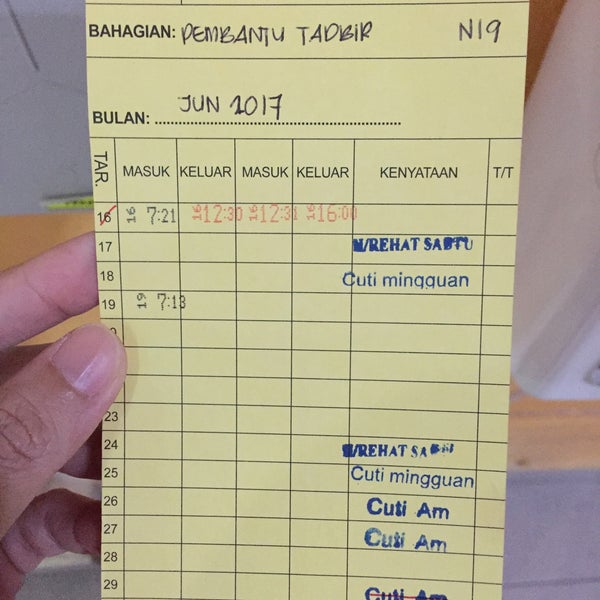 BAHAGIAN: PEMBANTU TADBIR N19
BULAN: JUN 2017
TAR. MASUK KELUAR MASUK KELUAR KENYATAAN T/T
16 16 7:21 16 12:30 16 12:31 16 16:00
17 H/REHAT SABTU
18 Cuti mingguan
19 19 7:13
23
24 H/REHAT
25 Cuti mingguan
26 Cuti Am
27 Cuti Am
28
29 Cuti Am